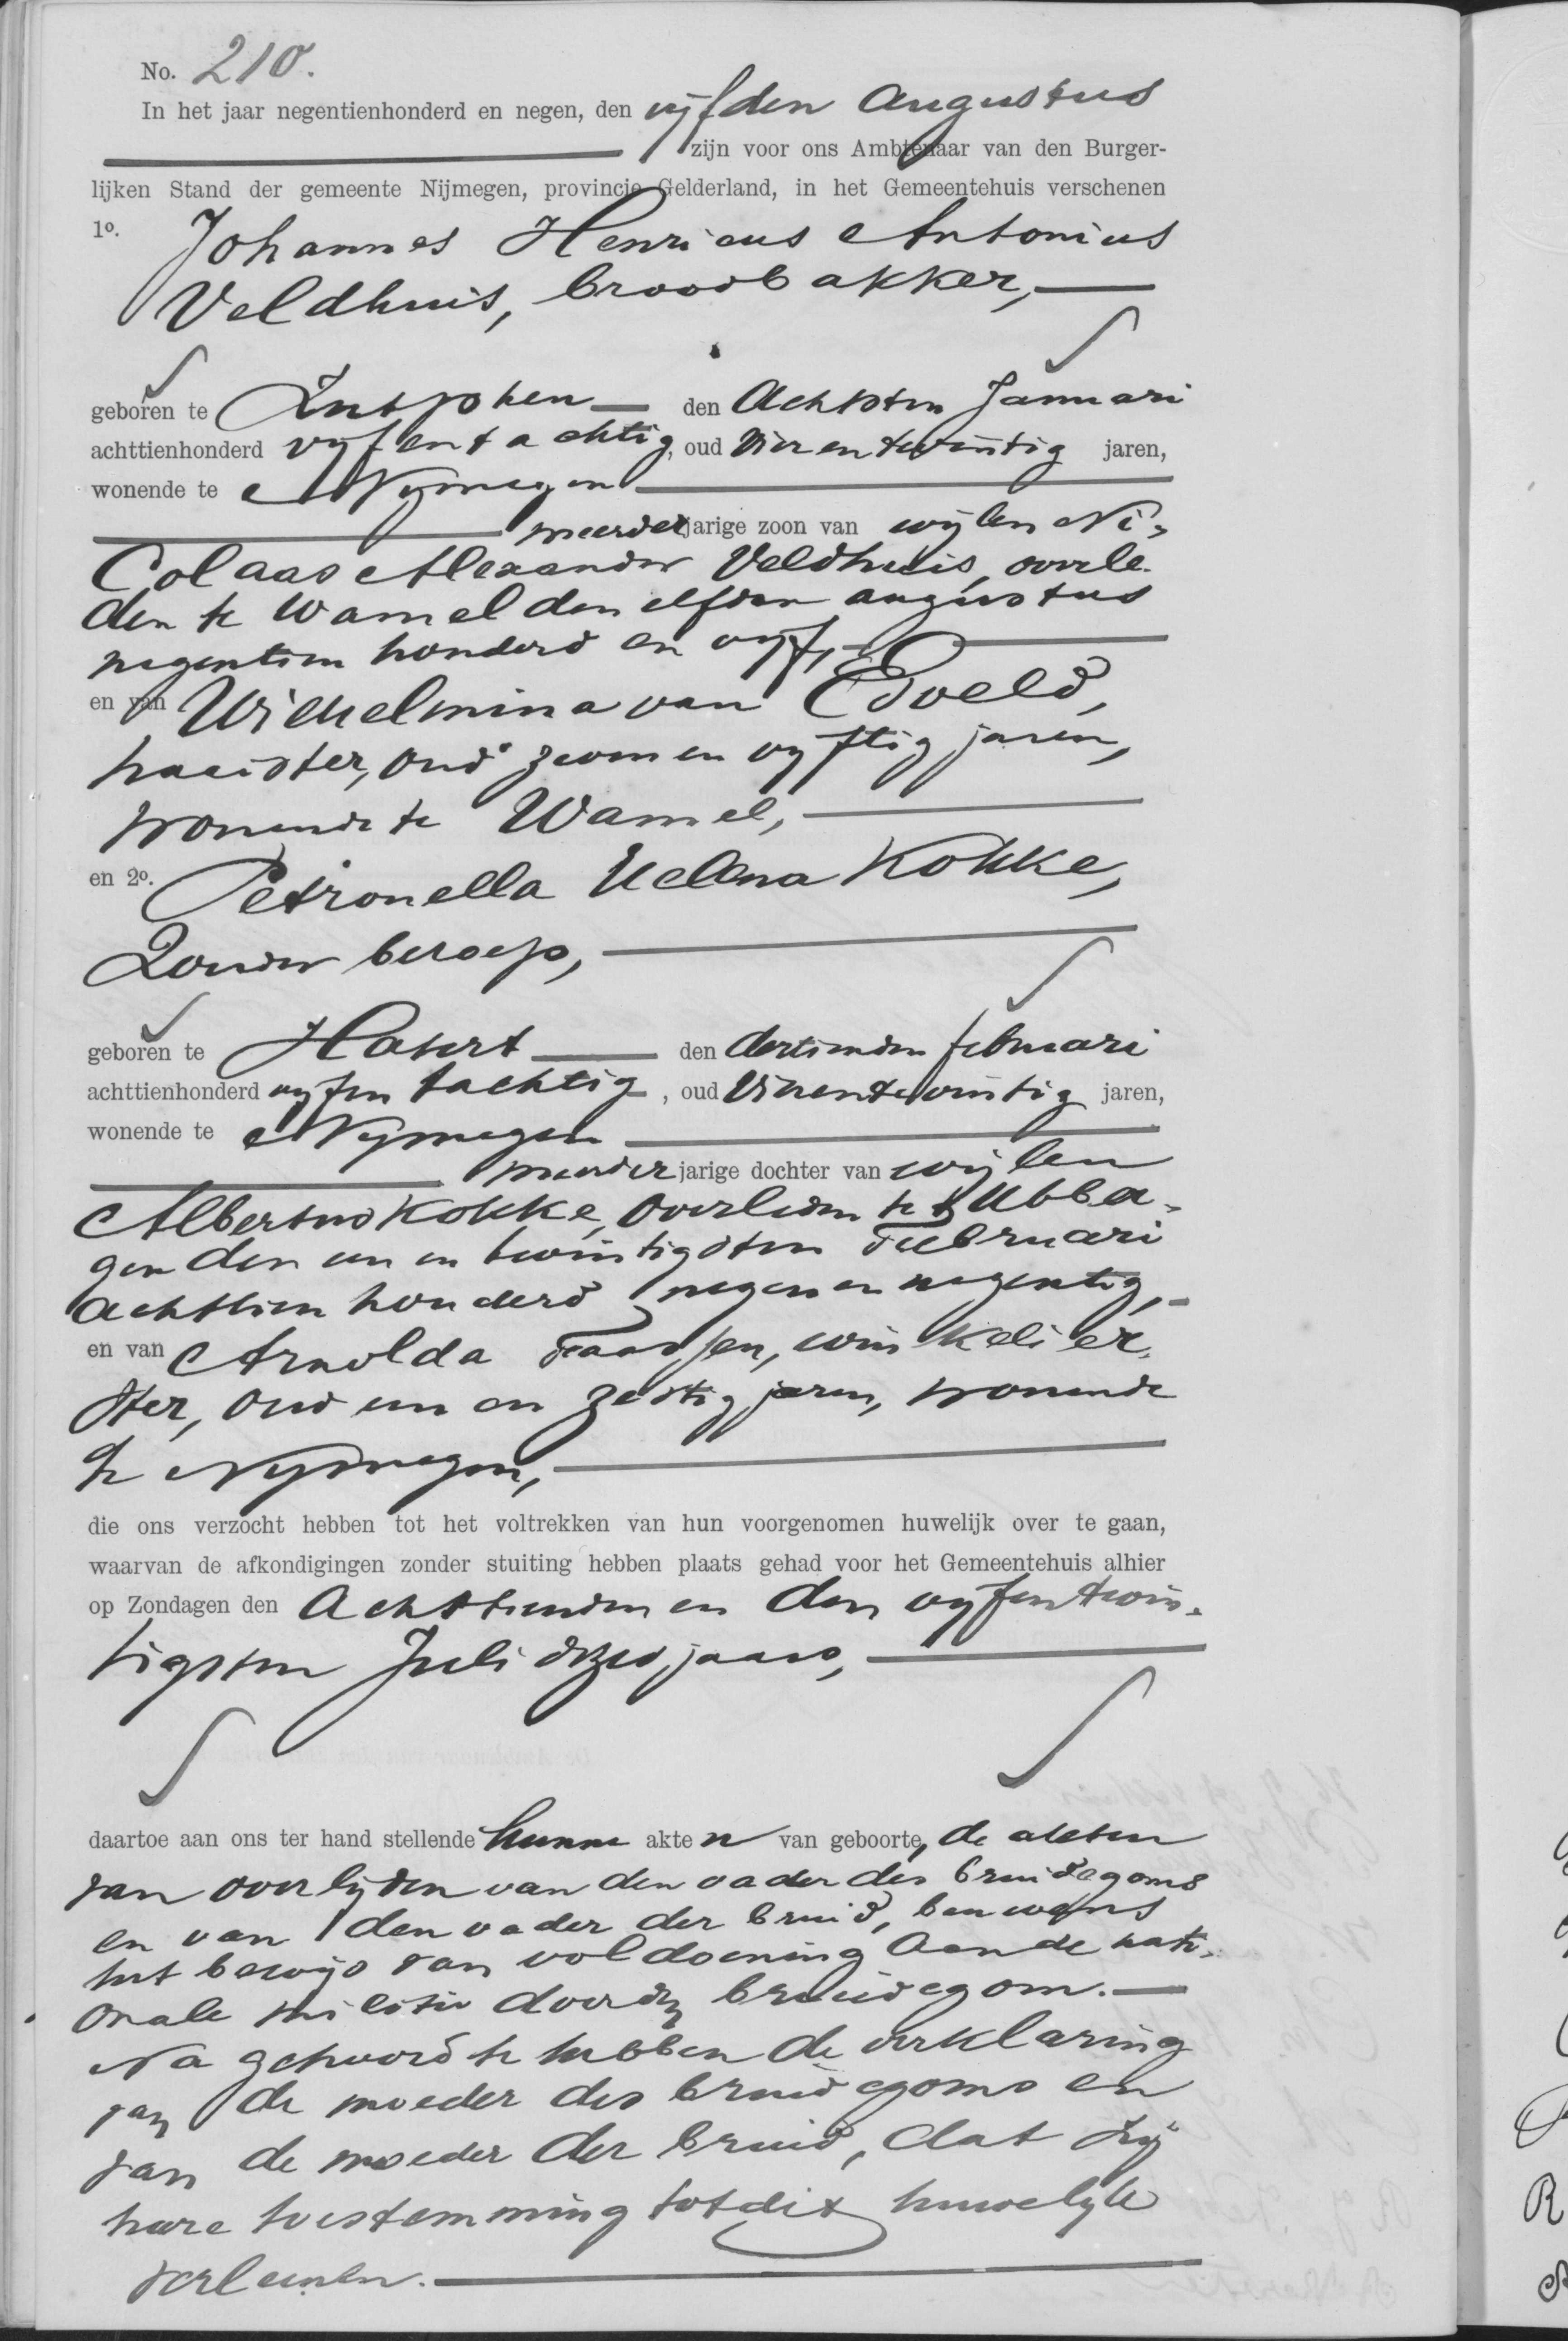 No. 210.
In het jaar negentienhonderd en negen, den vijfden Augustus
zijn voor ons Ambtenaar van den Burger-
lijken Stand der gemeente Nijmegen, provincie Gelderland, in het Gemeentehuis verschenen
1o. Johannes Henricus Antonius
Veldhuis, broodbakker,
geboren te Zutphen den Achtsten Januari
achttienhonderd vijfentachtig, oud Vierentwintig jaren,
wonende te Nijmegen
meerderjarige zoon van wijlen Ni-
colaas Alexander Veldhuis, overle-
den te Wamel den elfden augustus
negentien honderd en vijf,
en van Wilhelmina van
oud zeven en vijftig jaren,
wonende te Wamel,
en 2o. Petronella Helena Kokke,
Zonder beroep,
geboren te Hatert den dertienden februari
achttienhonderd vijfen tachtig, oud Vierentwintig jaren,
wonende te Nijmegen
meerderjarige dochter van wijlen
Albertus Kokke, overleden te Ubber-
gen den een en twintigsten Februari
achttien honderd negen en negentig,
en van Arnolda Faassen, winkelier-
ster, oud een en zestig jaren, wonende
te Nijmegen,
die ons verzocht hebben tot het voltrekken van hun voorgenomen huwelijk over te gaan,
waarvan de afkondigingen zonder stuiting hebben plaats gehad voor het Gemeentehuis alhier
op Zondagen den Achttienden en den vijfentwin-
tigsten Juli dezes jaars,
daartoe aan ons ter hand stellende hunne akten van geboorte, de akten
van overlijden van den vader des bruidegoms
en van den vader der bruid, benevens
het bewijs van voldoening aan de nati-
onale militie door den bruidegom.
Na gehoord te hebben de verklaring
van de moeder des bruidegoms en
van de moeder der bruid, dat zij
hare toestemming tot dit huwelijk
verleenen.